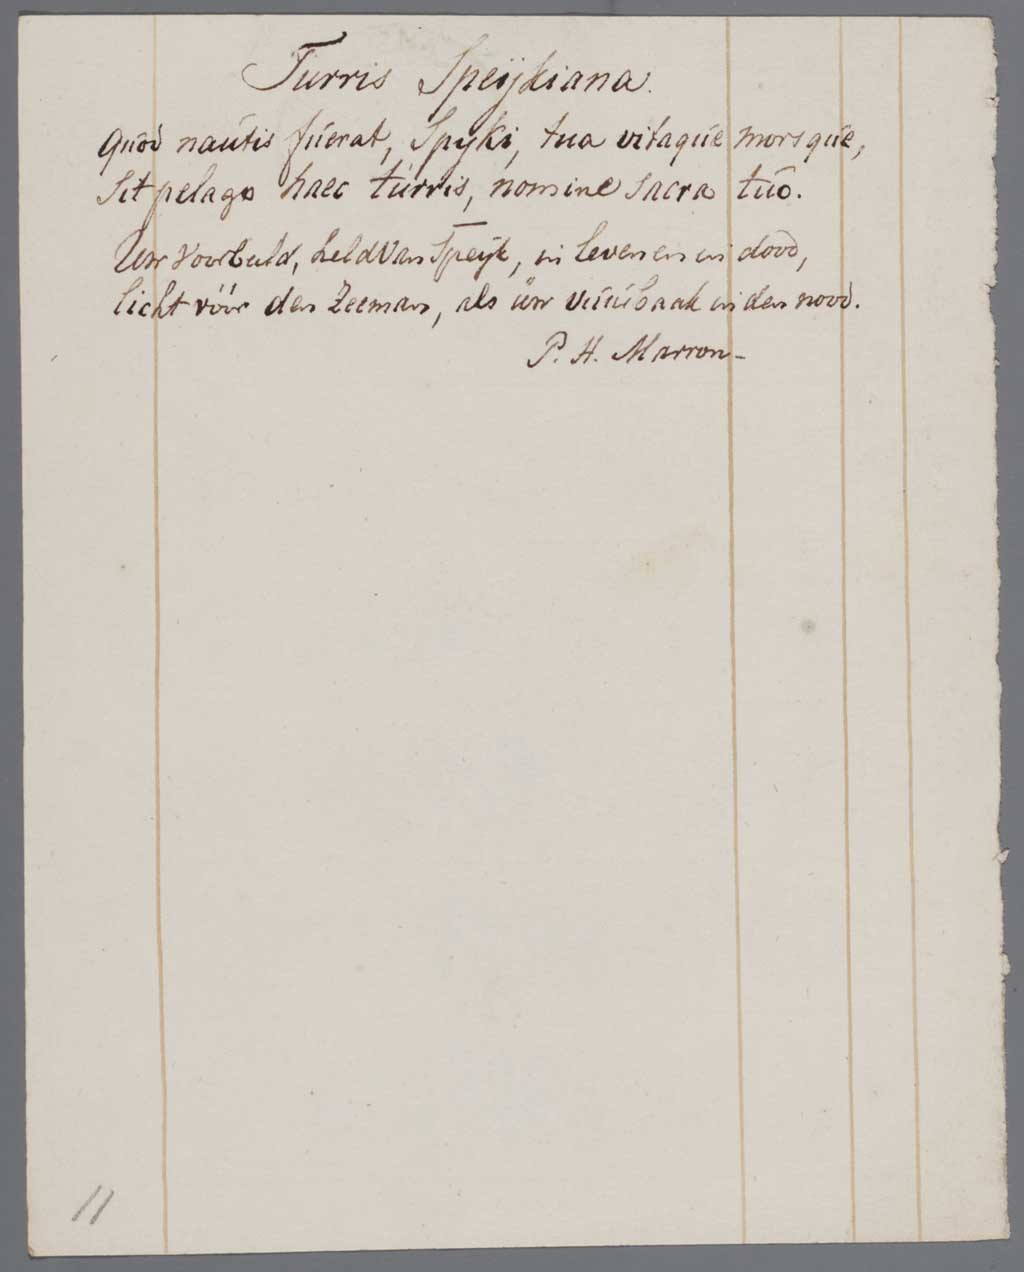 Turris Speijkiana.
Quod nautis fuerat, Spyki, tua vitaque morsque,
Sit pelago haec turris, nomine sacra tuo.
Uw voorbeeld, held Van Speijk, in leven en in dood,
licht vóór den Zeeman, als uw vuurbaak in den nood.
P. H. Marron-
11